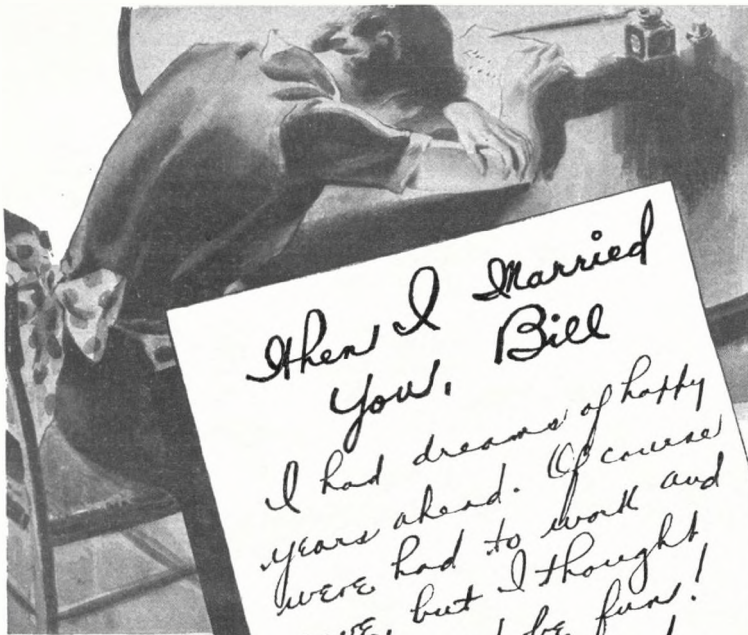 When I Married
You, Bill
I had dreams of happy
years ahead. Of course
we've had to work and
but I thought
be fun!